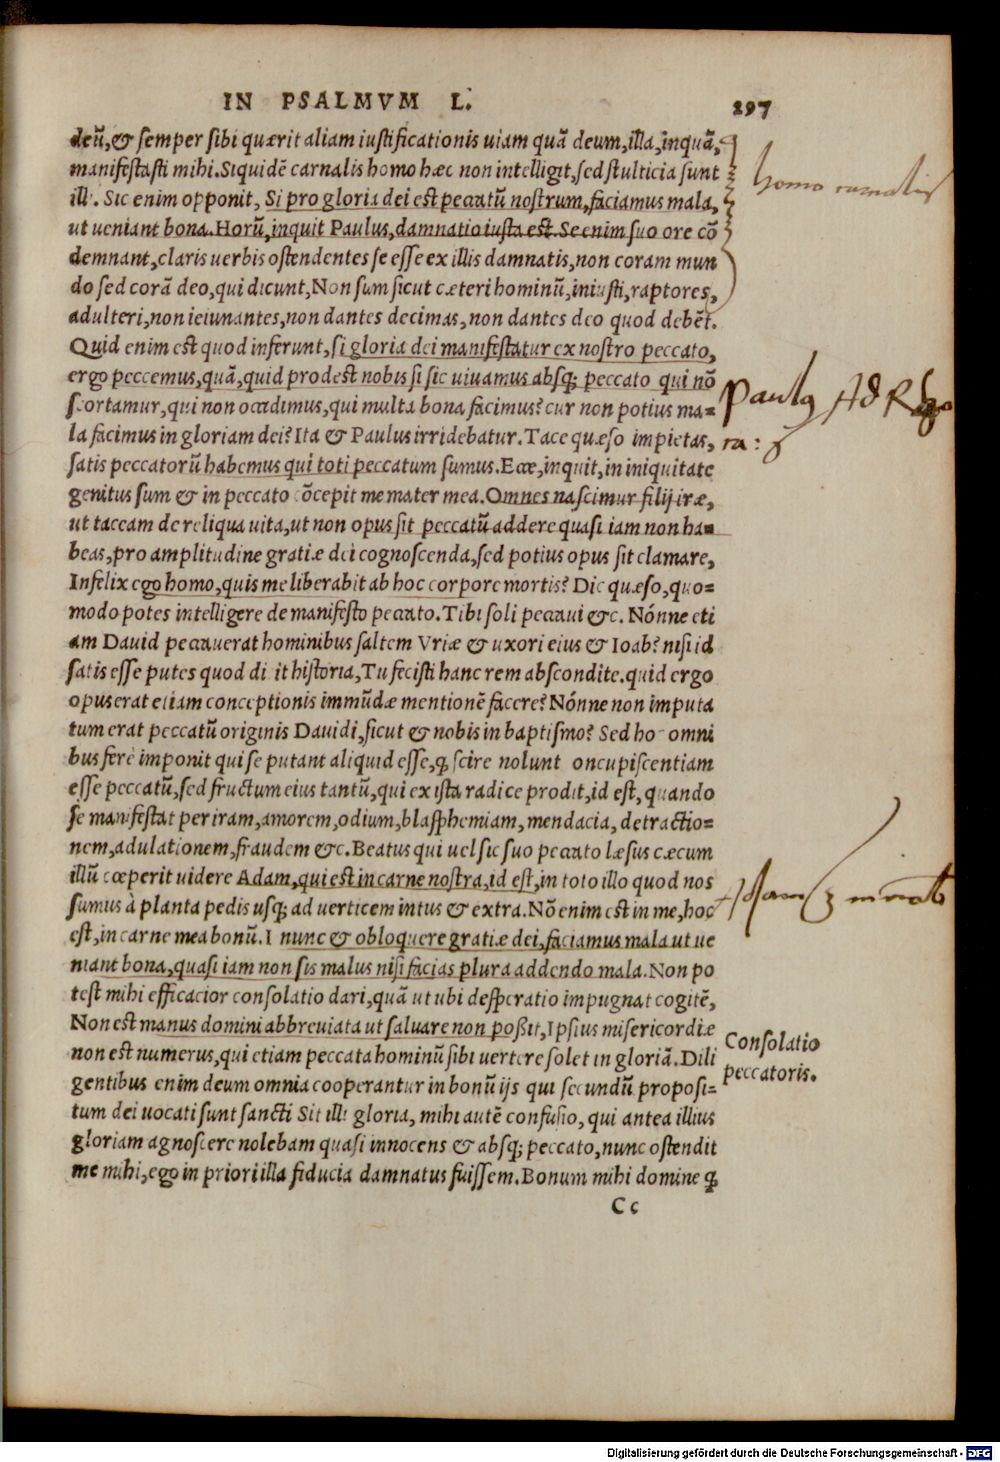 IN PSALMVM L.
297
deū,& semper sibi quærit aliam iustificationis uiam quā deum,illa,inquā,
manifestasti mihi.Siquidē carnalis homo hæc non intelligit,sed stulticia sunt
illi. Sic enim opponit, Si pro gloria dei est peccatū nostrum,faciamus mala,
ut ueniant bona.Horū,inquit Paulus,damnatio iusta est.Se enim suo ore cō
demnant,claris uerbis ostendentes se esse ex illis damnatis,non coram mun
do sed corā deo,qui dicunt,Non sum sicut cæteri hominū,iniusti,raptores,
adulteri,non ieiunantes,non dantes decimas,non dantes deo quod debēt.
Quid enim est quod inferunt,si gloria dei manifestatur ex nostro peccato,
ergo peccemus,quā,quid prodest nobis si sic uiuamus absq; peccato qui nō
scortamur,qui non occidimus,qui multa bona facimus? cur non potius ma=
la facimus in gloriam dei? Ita & Paulus irridebatur.Tace quæso impietas,
satis peccatorū habemus qui toti peccatum sumus.Ecce,inquit,in iniquitate
genitus sum & in peccato cōcepit me mater mea.Omnes nascimur filij iræ,
ut taceam de reliqua uita,ut non opus sit peccatū addere quasi iam non ha=
beas,pro amplitudine gratiæ dei cognoscenda,sed potius opus sit clamare,
Infelix ego homo,quis me liberabit ab hoc corpore mortis? Dic quæso,quo=
modo potes intelligere de manifesto peccato.Tibi soli peccaui &c. Nónne eti
am Dauid peccauerat hominibus saltem Vriæ & uxori eius & Ioab? nisi id
satis esse putes quod di it historia,Tu fecisti hanc rem abscondite.quid ergo
opus erat etiam conceptionis immūdæ mentionē facere? Nónne non imputa
tum erat peccatū originis Dauidi,sicut & nobis in baptismo? Sed ho omni
bus ferè imponit qui se putant aliquid esse,q; scire nolunt oncupiscentiam
esse peccatū,sed fructum eius tantū,qui ex ista radice prodit,id est,quando
se manifestat per iram,amorem,odium,blasphemiam,mendacia,detractio=
nem,adulationem,fraudem &c.Beatus qui uel sic suo peccato læsus cæcum
illū cœperit uidere Adam,qui est in carne nostra,id est,in toto illo quod nos
sumus à planta pedis usq; ad uerticem intus & extra.Nō enim est in me,hoc
est,in carne mea bonū.I nunc & obloquere gratiæ dei,faciamus mala ut ue
niant bona,quasi iam non sis malus nisi facias plura addendo mala.Non po
test mihi efficacior consolatio dari,quā ut ubi desperatio impugnat cogitē,
Non est manus domini abbreuiata ut saluare non poßit,Ipsius misericordiæ
non est numerus,qui etiam peccata hominū sibi uertere solet in gloriā.Dili
gentibus enim deum omnia cooperantur in bonū ijs qui secundū proposi=
tum dei uocati sunt sancti Sit illi gloria, mihi autē confusio, qui antea illius
gloriam agnoscere nolebam quasi innocens & absq; peccato,nunc ostendit
me mihi,ego in priori illa fiducia damnatus fuissem.Bonum mihi domine q;
Cc
homo carnalis
Paulus Ad Ro
Adam
Consolatio
peccatoris.
Digitalisierung gefördert durch die Deutsche Forschungsgemeinschaft - DFG